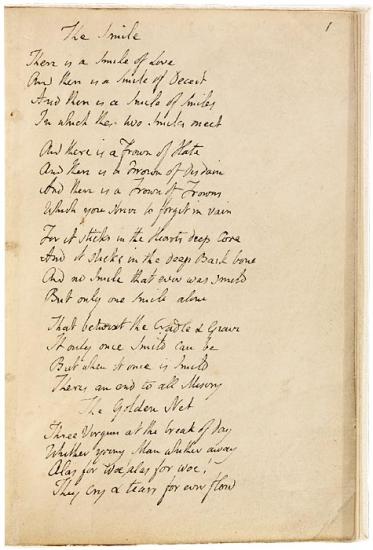 1
The Smile
There is a Smile of Love
And there is a Smile of Deceit
And there is a Smile of Smiles
In which these two Smiles meet
And there is a Frown of Hate
And there is a Frown of Disdain
And there is a Frown of Frowns
Which you strive to forget in vain
For it sticks in the Hearts deep Core
And it sticks in the deep Back bone
And no Smile that ever was smild
But only one Smile alone
That betwixt the Cradle & Grave
It only once Smild can be
But when it once is Smild
Theres an end to all Misery
The Golden Net
Three Virgins at the break of day
Whither young Man whither away
Alas for woe! alas for woe!
They cry & tears for ever flow